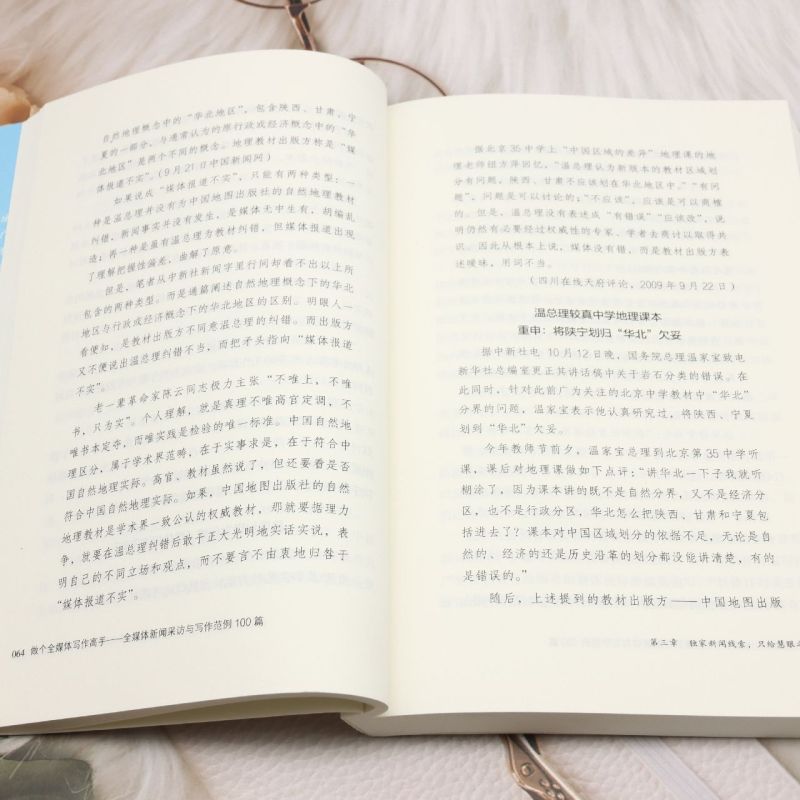 自然地理概念中的“华北地区”，包含陕西、甘肃、宁
夏的一部分，与通常认为的原行政或经济概念中的“华
北地区”是两个不同的概念。地理教材出版方称是“媒
体报道不实”。（9月21日中国新闻网）
如果说成“媒体报道不实”，只能有两种类型：一
种是温总理并没有为中国地图出版社的自然地理教材
纠错，新闻事实并没有发生，是媒体无中生有，胡编乱
造；再一种是虽有温总理为教材纠错，但媒体报道出现
了理解把握性偏差，曲解了原意。
但是，笔者从中新社新闻字里行间却看不出以上所
包含的两种类型。而是通篇阐述自然地理概念下的华北
地区与行政或经济概念下的华北地区的区别。明眼人一
看便知，是教材出版方不同意温总理的纠错。而出版方
又不便说出温总理纠错不当，而把矛头指向“媒体报道
不实”。
老一辈革命家陈云同志极力主张“不唯上，不唯
书，只为实”。个人理解，就是真理不唯高官定调，不
唯书本定夺，而唯实践是检验的唯一标准。中国自然地
理区分，属于学术界范畴，在于实事求是，在于符合中
国自然地理实际。高官、教材虽然说了，但还要看是否
符合中国自然地理实际。如果，中国地图出版社的自然
地理教材是学术界一致公认的权威教材，那就要据理力
争，就要在温总理纠错后敢于正大光明地实话实说，表
明自己的不同立场和观点，而不要言不由衷地归咎于
“媒体报道不实”。
064 做个全媒体写作高手——全媒体新闻采访与写作范例100篇
据北京35中学上“中国区域的差异”地理课的地
理老师组方萍回忆，“温总理认为新版本的教材区域划
分有问题，陕西、甘肃不应该划在华北地区中。”“有问
题”，问题是可以讨论的；“不应该”，应该是可以商榷
的。但是，温总理没有表述成“有错误”“应该改”，说
明仍然有必要经过权威性的专家、学者去商讨以取得共
识。因此从根本上说，媒体没有错，而是教材出版方表
述暧昧，用词不当。
（四川在线天府评论，2009年9月22日）
温总理较真中学地理课本
重申：将陕宁划归“华北”欠妥
据中新社电 10月12日晚，国务院总理温家宝致电
新华社总编室更正其讲话稿中关于岩石分类的错误。在
此同时，针对此前广为关注的北京中学教材中“华北”
分界的问题，温家宝表示他认真研究过，将陕西、宁夏
划到“华北”欠妥。
今年教师节前夕，温家宝总理到北京第35中学听
课，课后对地理课做如下点评：“讲华北一下子我就听
糊涂了，因为课本讲的既不是自然分界，又不是经济分
区，也不是行政分区，华北怎么把陕西、甘肃和宁夏包
括进去了？课本对中国区域划分的依据不足，无论是自
然的、经济的还是历史沿革的划分都没能讲清楚，有的
是错误的。”
随后，上述提到的教材出版方——中国地图出版
第三章 独家新闻线索，只给慧眼